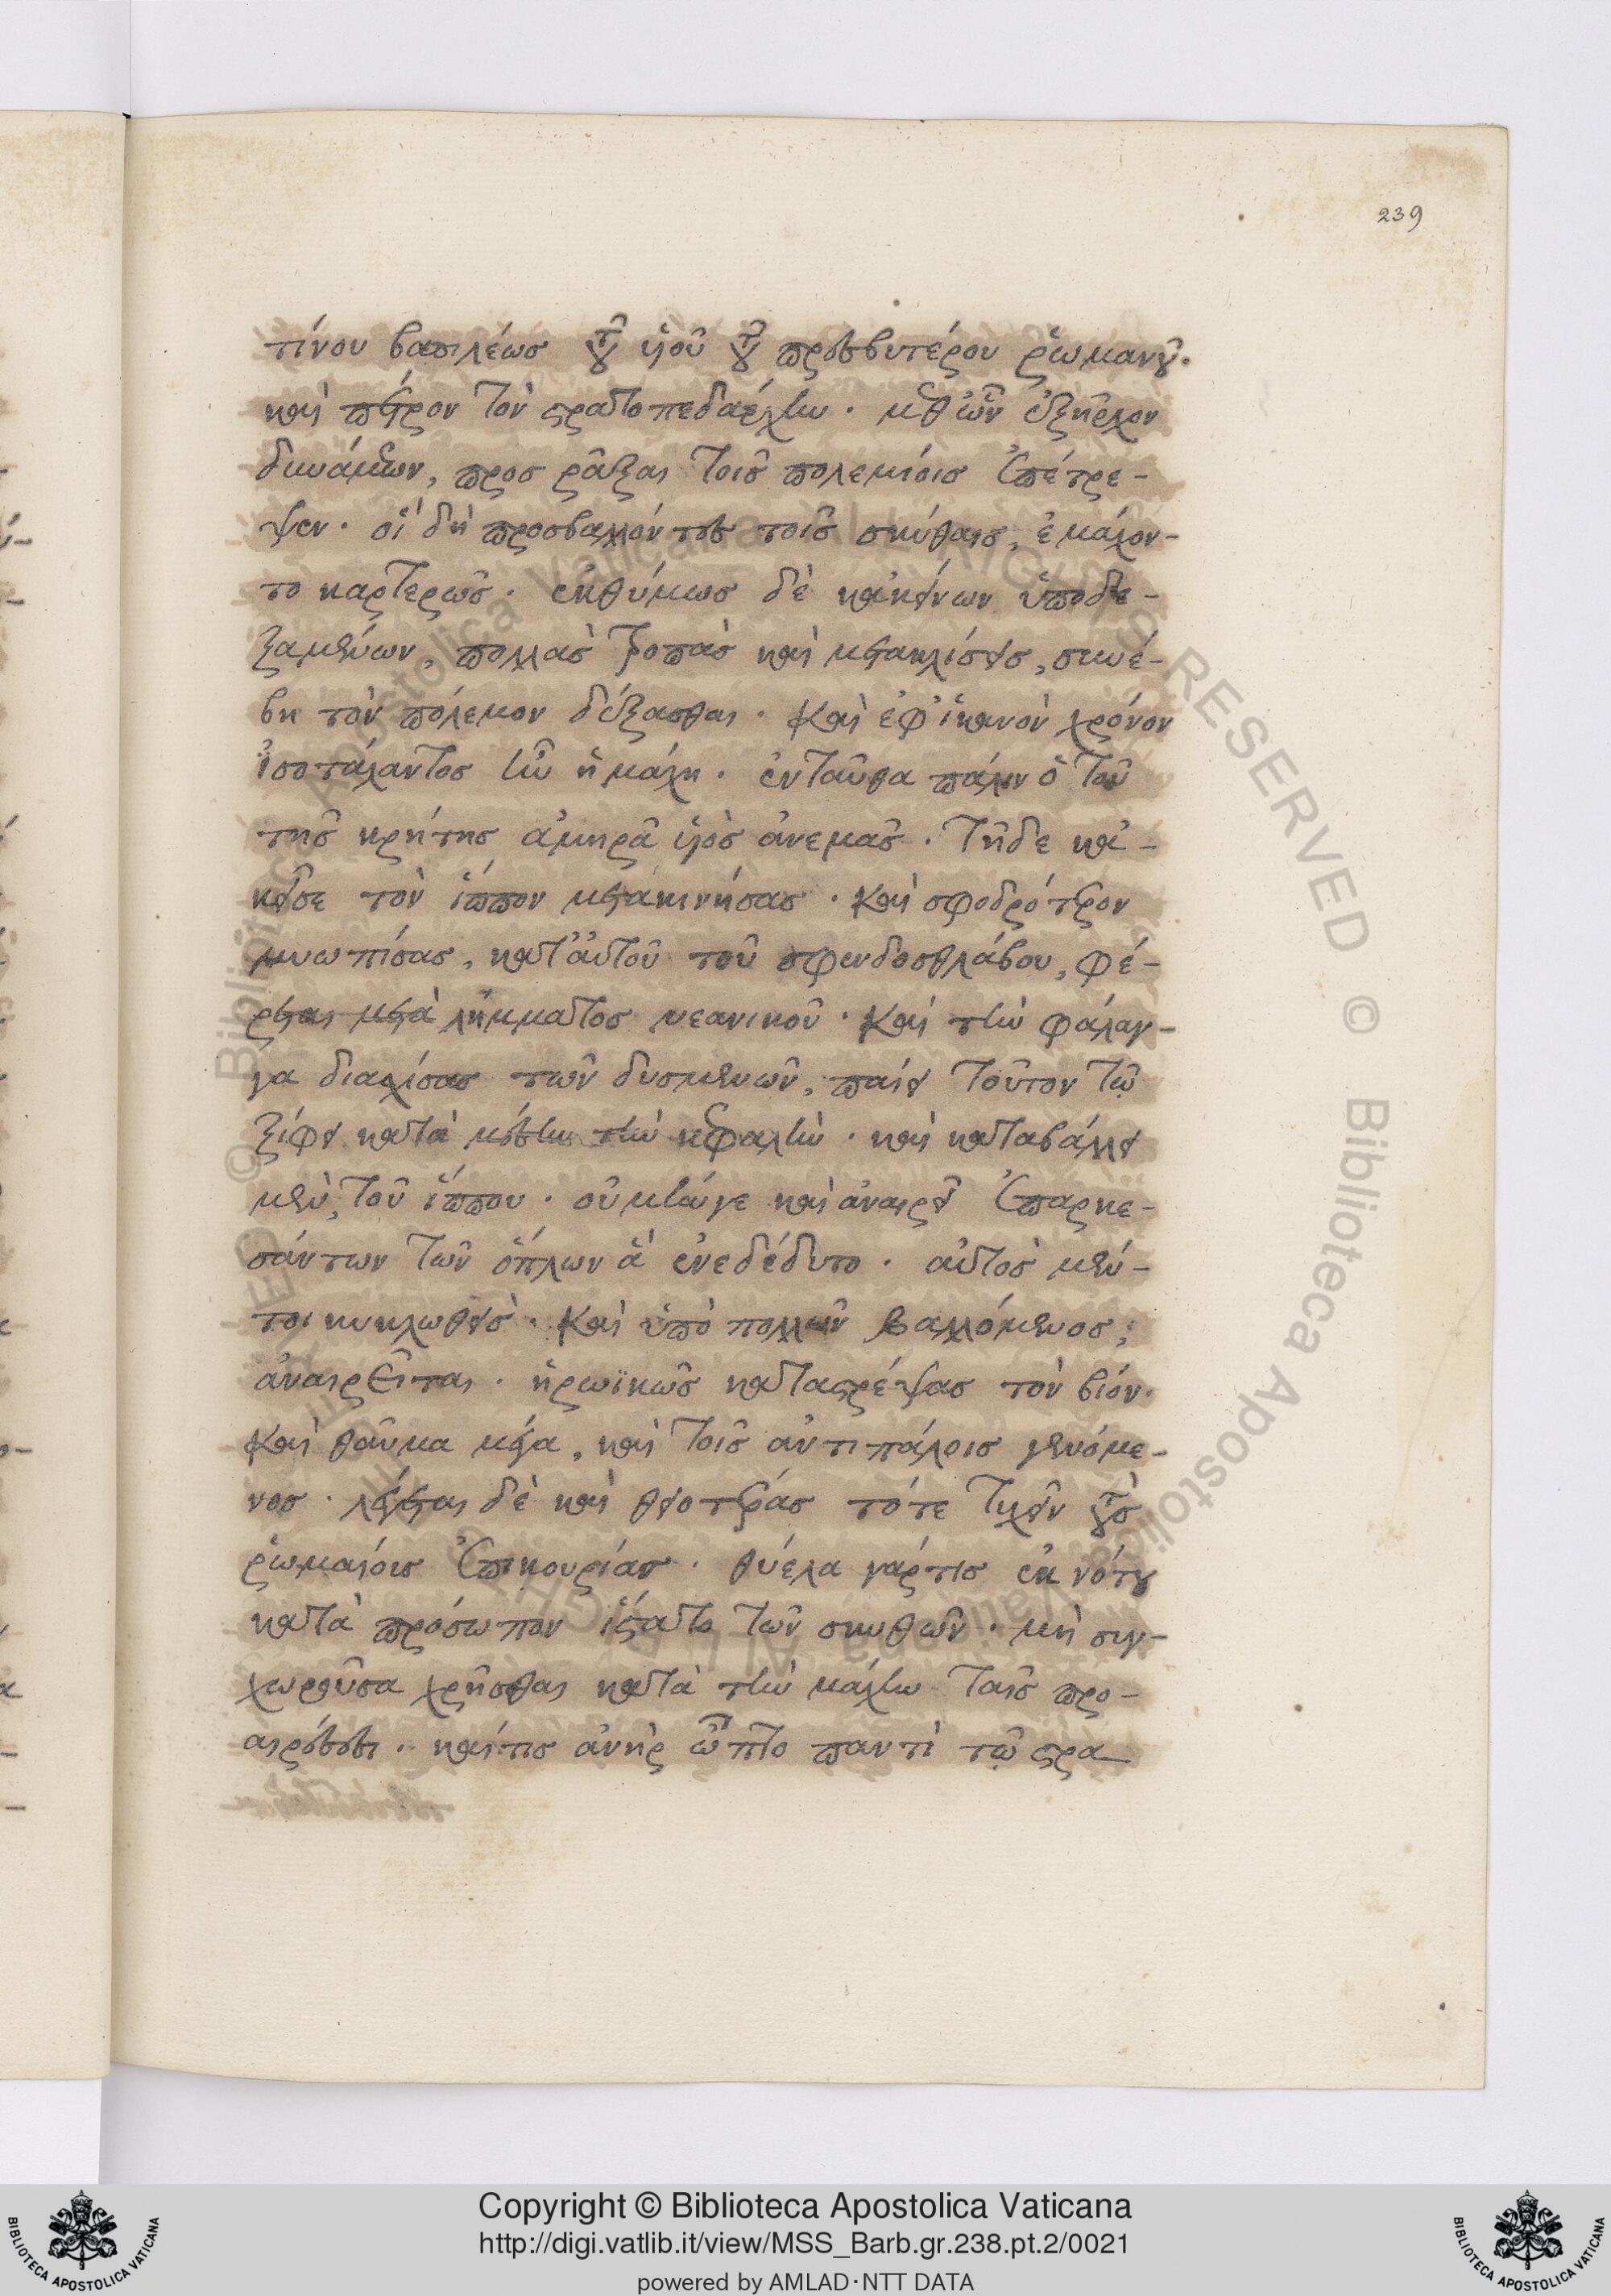 239
τίνου βασιλέως τοῦ ὑϊοῦ τοῦ πρεσβυτέρου ῥωμανοῦ.
καὶ πέτρον τὸν στρατοπεδάρχην. μεθ ὧν ἐξῆρχον
δυνάμεων, προσ ῥᾶξαι τοῖς πολεμίοις ἐπέτρε-
ψεν. οἱ δὴ προσβαλλόντες τοῖς σκύθαις, ἐμάχον-
το καρτερῶς. ἐκθύμως δὲ κἀκείνων ὑποδε-
ξαμένων, πολλὰς τροπὰς καὶ μετακλίσεις, συνέ-
βη τὸν πόλεμον δέξασθαι. καὶ ἐφ' ἱκανὸν χρόνον
ἰσοτάλαντος ἦν ἡ μάχη. ἐνταῦθα πάλιν ὁ τοῦ
τῆς κρήτης ἀμηρᾶ ὑιὸς ἀνεμᾶς. τῆδε κἀ-
κεῖσε τὸν ἵππον μετακινήσας. καὶ σφοδρότερον
μυωπίσας, κατ' αὐτοῦ τοῦ σφενδοσθλάβου, φέ-
ρεται μετὰ λήμματος νεανικοῦ. καὶ τὴν φάλαγ-
γα διασχίσας τῶν δυσμενῶν, παίει τοῦτον τῷ
ξίφει κατὰ μέσην τὴν κεφαλὴν. καὶ καταβάλλει
μὲν, τοῦ ἵππου. οὐ μὴν γε καὶ ἀναιρεῖ ἐπαρκε-
σάντων τῶν ὅπλων ἃ ἐνεδέδυτο. αὐτὸς μέν-
τοι κυκλωθεὶς. καὶ ὑπὸ πολλῶν βαλλόμενος,
ἀναιρεῖται. ἡρωϊκῶς καταστρέψας τὸν βίον.
καὶ θαῦμα μέγα, καὶ τοῖς ἀντιπάλοις γενόμε-
νος. λέγεται δὲ καὶ θειοτέρας τότε τυχεῖν τοὺς
ῥωμαίοις ἐπικουρίας. θύελα γάρ τις ἐκ νότου
κατὰ πρόσωπον ἵστατο τῶν σκυθῶν. μὴ συγ-
χωροῦσα χρῆσθαι κατὰ τὴν μάχην ταῖς προ-
αιρέσεσι. καί τις ἀνὴρ ὦπτο παντὶ τῷ στρα
Copyright © Biblioteca Apostolica Vaticana
http://digi.vatlib.it/view/MSS_Barb.gr.238.pt.2/0021
powered by AMLAD·NTT DATA